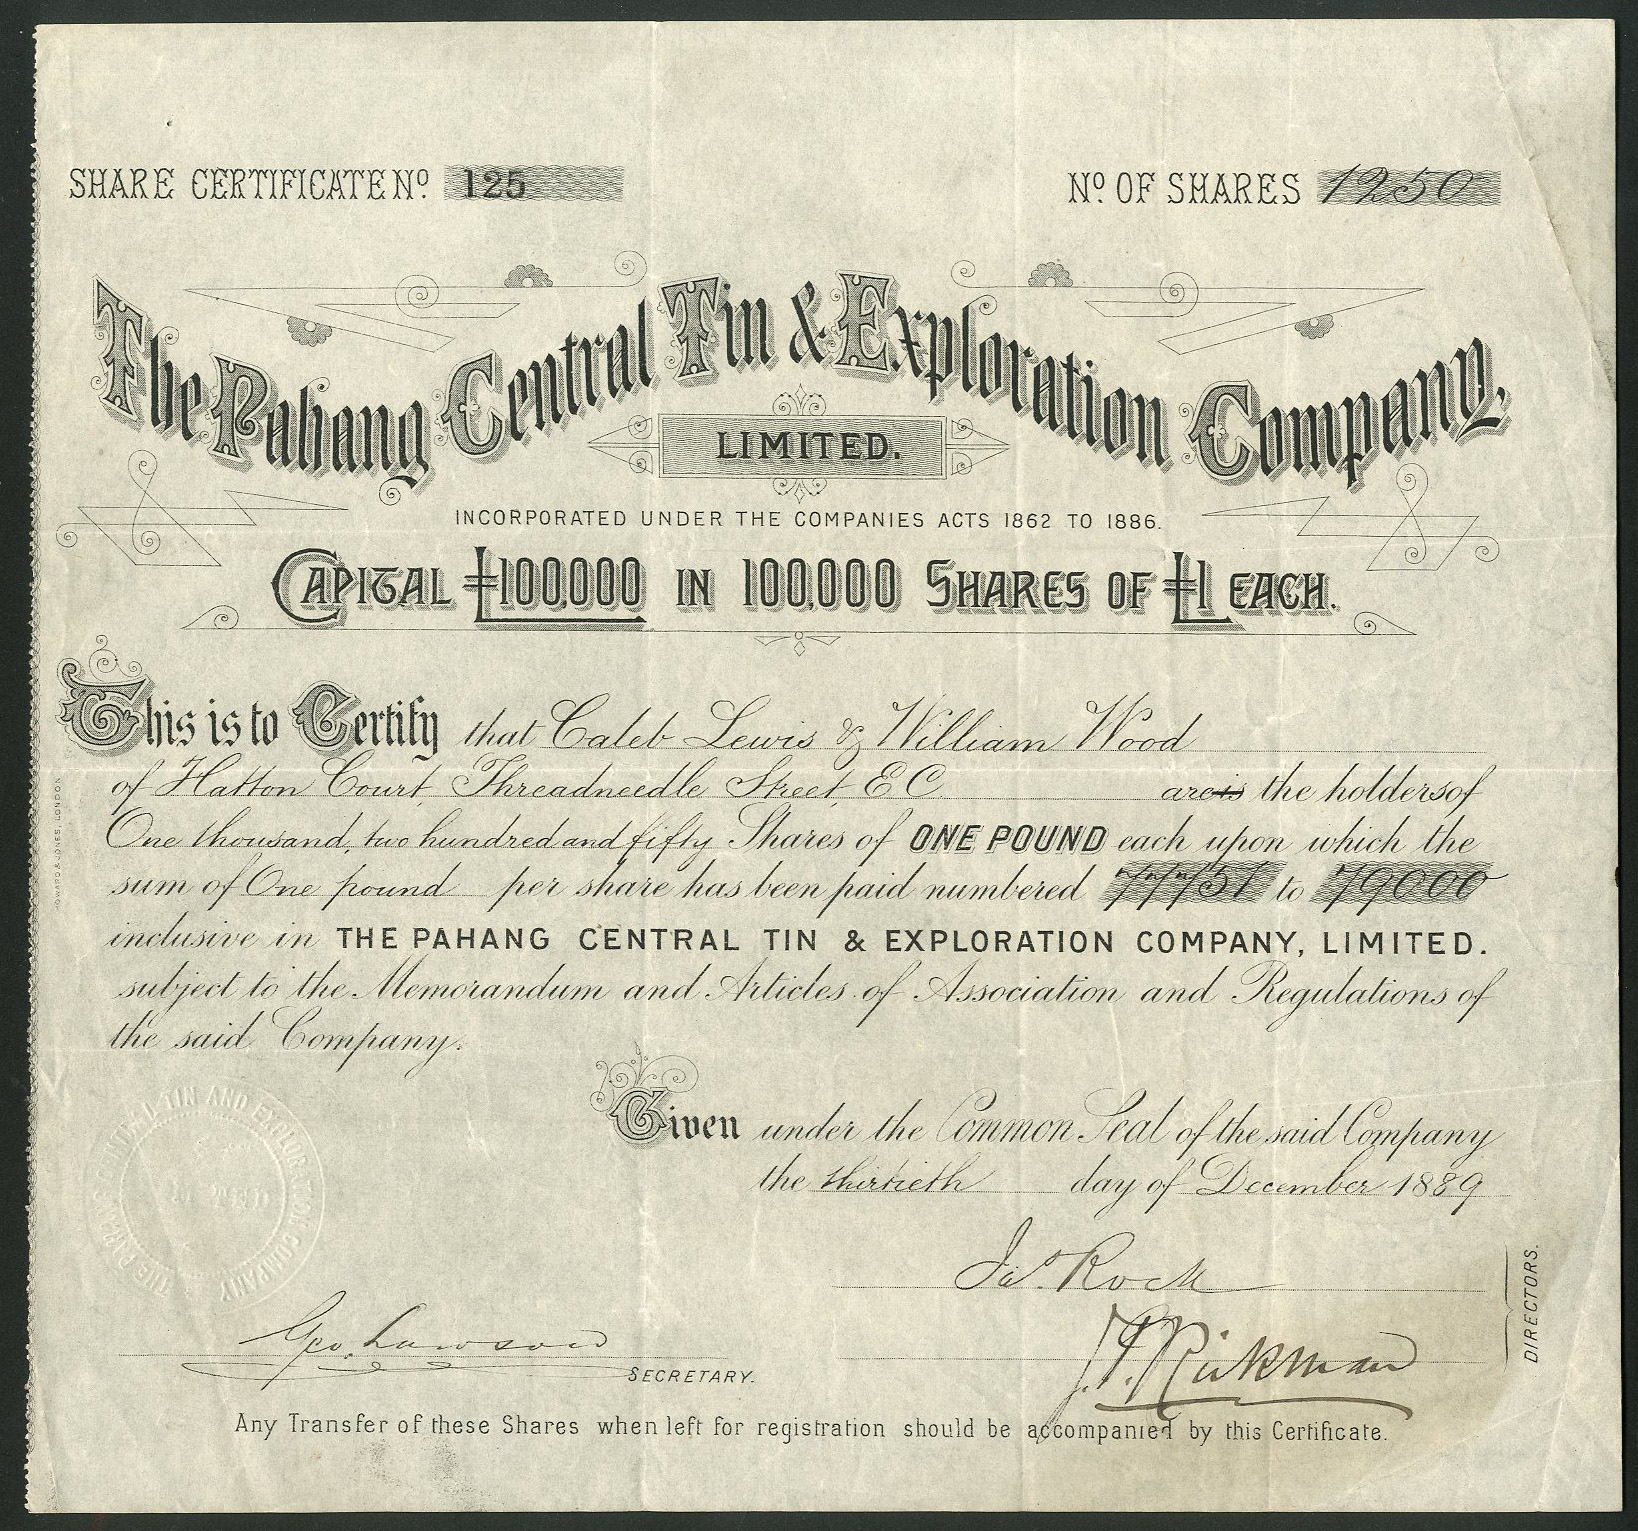 SHARE CERTIFICATE Nº 125
Nº OF SHARES 1250
The Pahang Central Tin & Exploration Company,
LIMITED.
INCORPORATED UNDER THE COMPANIES ACTS 1862 TO 1886.
CAPITAL £100,000 IN 100,000 SHARES OF £1 EACH.
This is to Certify that Caleb Lewis & William Wood
of Hatton Court, Threadneedle Street, E C are is the holders of
One thousand, two hundred and fifty Shares of ONE POUND each upon which the
sum of One pound per share has been paid numbered 77751 to 79000
inclusive in THE PAHANG CENTRAL TIN & EXPLORATION COMPANY, LIMITED.
subject to the Memorandum and Articles of Association and Regulations of
the said Company.
Given under the Common Seal of the said Company
the thirtieth day of December 1889
Jas. Rock
J.T. Rickman
DIRECTORS.
Geo. Lawson
SECRETARY.
Any Transfer of these Shares when left for registration should be accompanied by this Certificate.
THE PAHANG TIN AND EXPLORATION COMPANY
LIMITED
& JONES, LONDON